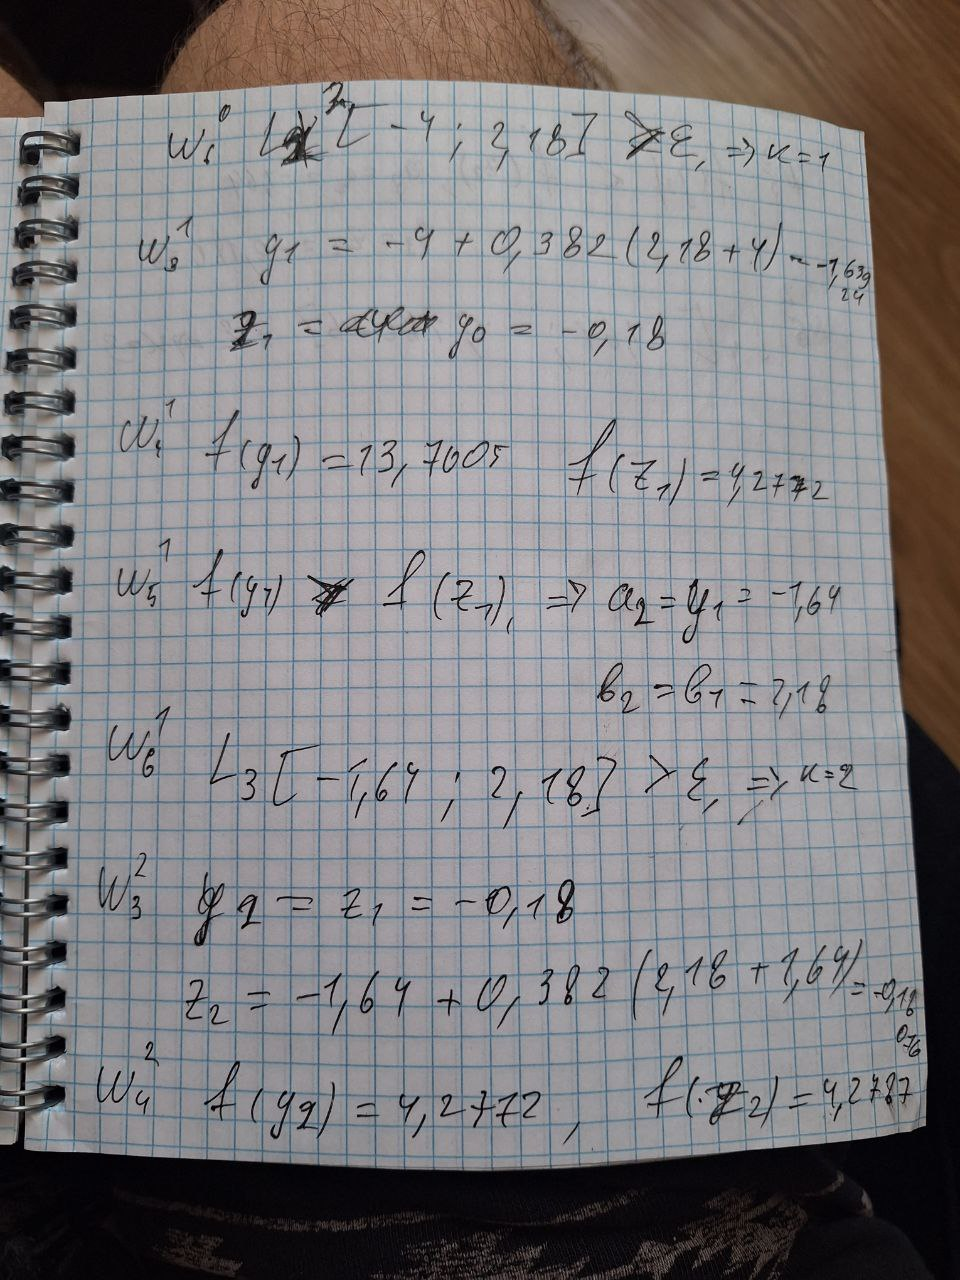 Ш₆⁰ L₂[-4 ; 2,18] > ε, ⇒ к=1
Ш₃¹ y₁ = -4 + 0,382 (2,18+4) = -1,63924
z₁ = y₀ = -0,18
Ш₄¹ f(y₁) = 13,7005 f(z₁) = 4,2772
Ш₅¹ f(y₁) > f(z₁), ⇒ a₂ = y₁ = -1,64
b₂ = b₁ = 2,18
Ш₆¹ L₃[-1,64 ; 2,18] > ε, ⇒ к=2
Ш₃² y₂ = z₁ = -0,18
z₂ = -1,64 + 0,382 (2,18 + 1,64) = -0,18076
Ш₄² f(y₂) = 4,2772 , f(z₂) = 4,2787